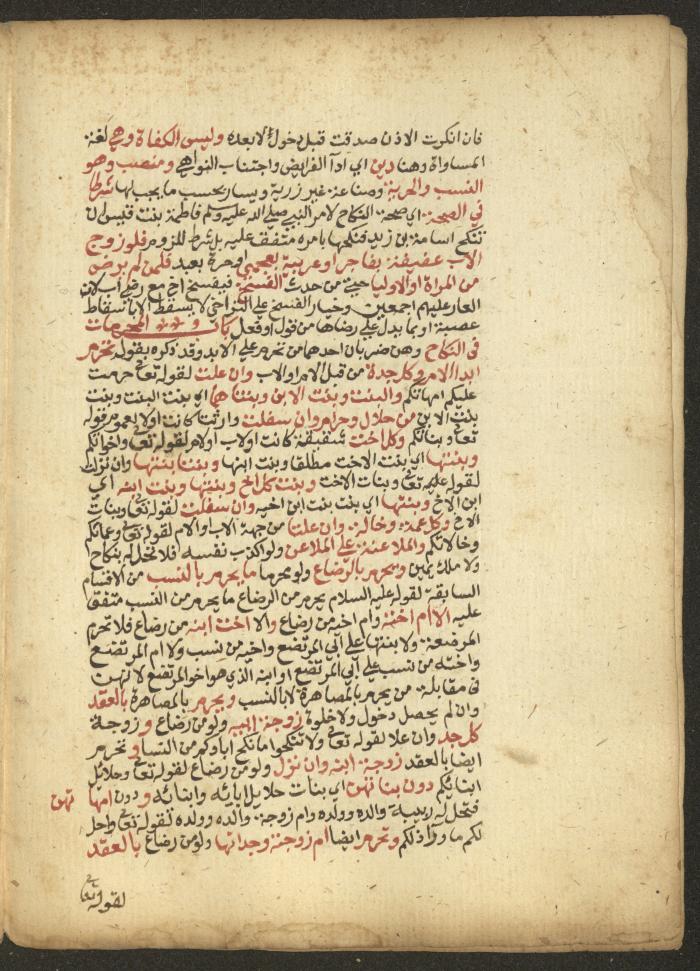 فان انكرت الاذن صدقت قبل دخول لا بعده وليس الكفاة وهي لغة
المساواة وهنا دين اي ادآ الفرايض واجتناب النواهي ومنصب وهو
النسب والحرية وصناعة غير زرية ويسار بحسب ما يجب لها شرطا
في الصحة اي صحة النكاح لامر النبي صلى الله عليه ولم فاطمة بنت قيس ان
تنكح اسامة بن زيد فنكحها بامره متفق عليه بل شرط للزوم فلو زوج
الاب عفيفة بفاجر او عربية بعجمي او حرة بعبد فلمن لم يرض
من المراة او الاوليا حتى من حدث الفسخ فيفسخ اخ مع رضى اب لان
العار عليهم اجمعين وخيار الفسخ على التراخي لا يسقط الا باسقاط
عصبة او بما يدل على رضاها من قول او فعل باب المحرمات
في النكاح وهن ضربان احدهما من تحرم على الابد وقد ذكره بقوله تحرم
ابدا الام وكل جدة من قبل الام او الاب وان علت لقوله تعالى حرمت
عليكم امهاتكم والبنت وبنت الابن وبنتاهما اي بنت البنت وبنت
بنت الابن من حلال وحرام وان سفلت وارثتا كانت او لا لعموم قوله
تعالى وبناتكم وكل اخت شقيقة كانت او لاب او لام لقوله تعالى واخواتكم
وبنتها اي بنت الاخت مطلقا وبنت ابنها وبنت بنتها وان نزلت
لقوله تعالى وبنات الاخت وبنت كل اخ وبنتها وبنت ابنه اي
ابن الاخ وبنتها اي بنت بنت ابن اخيه وان سفلت لقوله تعالى وبنات
الاخ وكل عمة وخالة وان علتا من جهة الاب او الام لقوله تعالى وعماتكم
وخالاتكم والملاعنة على الملاعن ولو اكذب نفسه فلا تحل له بنكاح
ولا ملك يمين ويحرم بالرضاع ولو محرما ما يحرم بالنسب من الاقسام
السابقة لقوله عليه السلام يحرم من الرضاع ما يحرم من النسب متفق
عليه الا ام اخته وام اخيه من رضاع والا اخت ابنه من رضاع فلا تحرم
المرضعة ولا بنتها على ابي المرتضع واخيه من نسب ولا ام المرتضع
واخته من نسب على ابي المرتضع او ابنه الذي هو اخو المرتضع لانهن
في مقابلة من يحرم بالمصاهرة لا بالنسب ويحرم بالمصاهرة بالعقد
وان لم يحصل دخول ولا خلوة زوجة ابيه ولو من رضاع وزوجة
كل جد وان علا لقوله تعالى ولا تنكحوا ما نكح اباوكم من النسا وتحرم
ايضا بالعقد زوجة ابنه وان نزل ولو من رضاع لقوله تعالى وحلائل
ابنائكم دون بناتهن اي بنات حلايل ابائه وابنائه ودون امهاتهن
فتحل له ربيبة والده وولده وام زوجة والده وولده لقوله تعالى واحل
لكم ما ورآ ذلكم وتحرم ايضا ام زوجته وجداتها ولو من رضاع بالعقد
لقوله تعالى